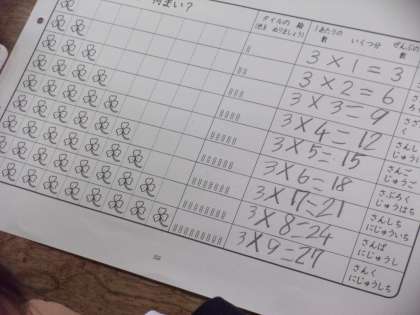 何まい?
タイルの 絵 1あたりの数 いくつ分 ぜんぶの数
3×1=3
3×2=6
3×3=9
3×4=12
3×5=15 さんご じゅうご
3×6=18 さぶろく じゅうはち
3×7=21 さんしち にじゅういち
3×8=24 さんぱ にじゅうし
3×9=27 さんく にじゅうしち